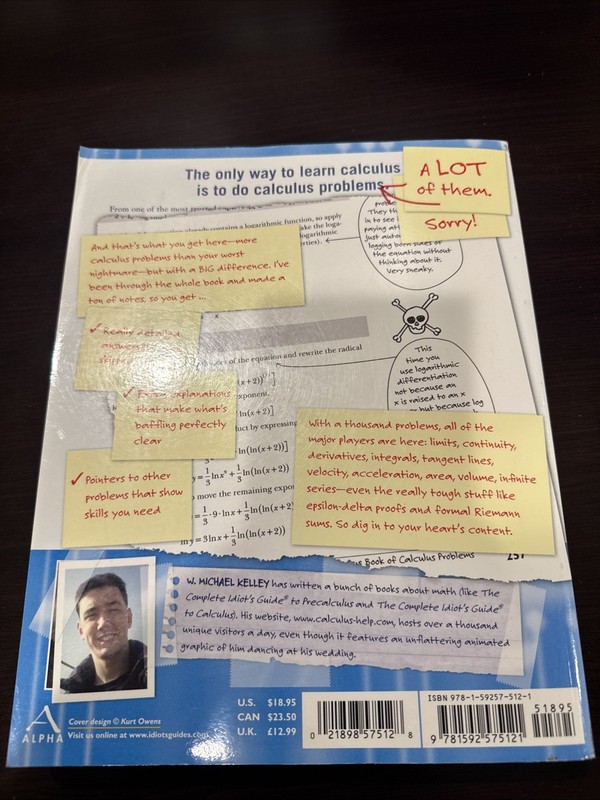 The only way to learn calculus
is to do calculus problems
A LOT
of them.
Sorry!
From one of the most
They th
is to see i
paying att
just auto
logging both sides of
the equation without
thinking about it.
Very sneaky.
contains a logarithmic function, so apply
take the loga-
logarithmic
rties).
And that's what you get here—more
calculus problems than your worst
nightmare—but with a BIG difference. I've
been through the whole book and made a
ton of notes, so you get ...
✓ Really detailed
answers
skipped
x
sides of the equation and rewrite the radical
This
time you
use logarithmic
differentiation
not because an
x is raised to an x
but because log
✓ Extra explanations
that make what's
baffling perfectly
clear
(x+2))
exponent.
ln(x+2)]
duct by expressing
ln(ln(x+2))]
y = 1/3 ln x⁹ + 1/3 ln(ln(x+2))
move the remaining expon
= 1/3 · 9 · ln x + 1/3 ln(ln(x+2))
ln y = 3 ln x + 1/3 ln(ln(x+2))
✓ Pointers to other
problems that show
skills you need
With a thousand problems, all of the
major players are here: limits, continuity,
derivatives, integrals, tangent lines,
velocity, acceleration, area, volume, infinite
series—even the really tough stuff like
epsilon-delta proofs and formal Riemann
sums. So dig in to your heart's content.
Book of Calculus Problems
257
W. MICHAEL KELLEY has written a bunch of books about math (like The
Complete Idiot's Guide® to Precalculus and The Complete Idiot's Guide®
to Calculus). His website, www.calculus-help.com, hosts over a thousand
unique visitors a day, even though it features an unflattering animated
graphic of him dancing at his wedding.
ALPHA
Cover design © Kurt Owens
Visit us online at www.idiotsguides.com
U.S. $18.95
CAN $23.50
U.K. £12.99
0 21898 57512 8
ISBN 978-1-59257-512-1
51895
9 781592 575121